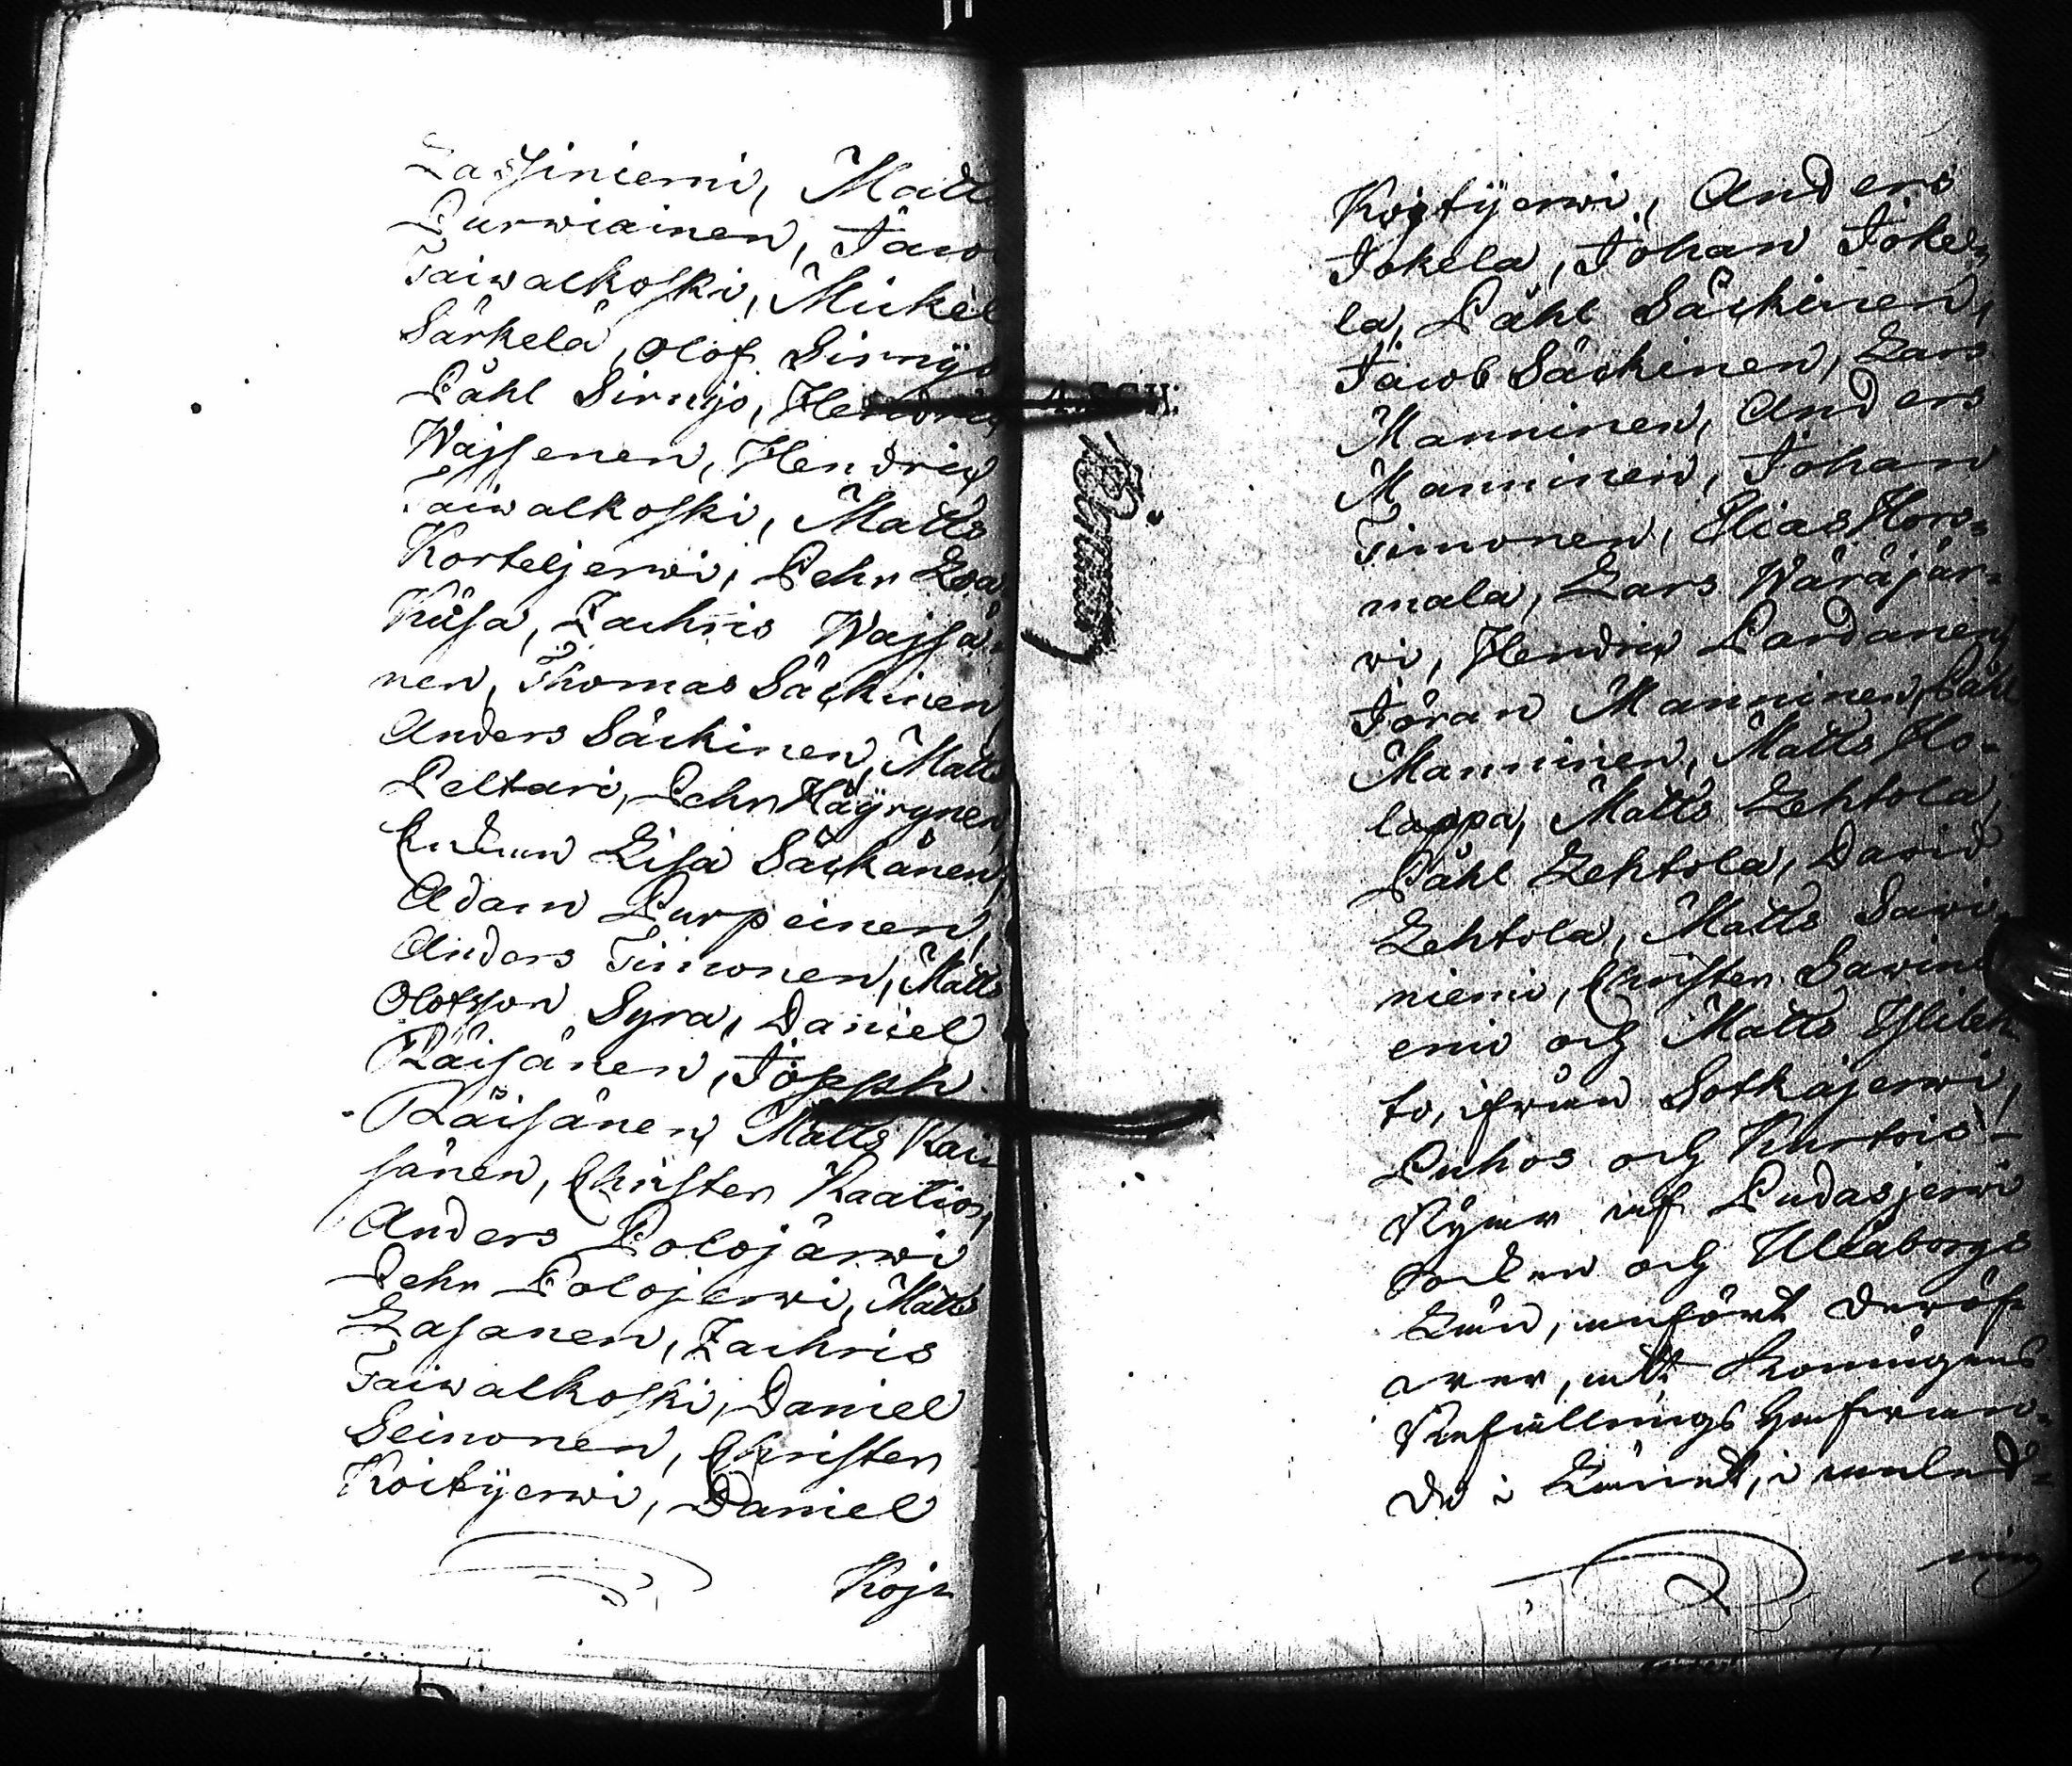 Lassiniemi, Matts
Purwiainen, Jacob
Taiwalkoski, Mickel
Särkelä, Olof Sirniö
Påhl Sirniö, Hendric
Wajssenen, Hendric
Taiwalkoski, Matts
Korteljerwi, Pehr
Kusa, Zachris Wajssä-
nen, Thomas Säckinen
Anders Säckinen, Matts
Peltari, Pehr Häyrynen,
Enkan Lisa Säckänen,
Adam Purpeinen,
Anders Timonen, Matts
Olofsson Syra, Daniel
Räisänen, Joseph
Räisänen, Matts Räi
sänen, Christer Raatio,
Anders Polojärwi
Pehr Polojerwi, Matts
Lasanen, Zachris
Taiwalkoski, Daniel
Seinonen, Christer
Koitijerwi, Daniel
Koji
Koitijerwi, Anders
Jokela, Johan Joke-
la, Påhl Säckinen,
Jacob Säckinen, Lars
Manninen, Anders
Manninen, Johan
Timonen, Elias Hors-
mala, Lars Wäräjär-
wi, Hendric Pardanen,
Jöran Manninen, Påhl
Manninen, Matts Ho-
lappa, Matts Lehtola,
Påhl Lehtola, David
Lehtola, Matts Savi-
niemi, Christer Savini
emi och Matts Ylileh
to, ifrån Sotkajerwi,
Puhos och Kurtois-
Byar af Pudasjerwi
Socken och Uleåborgs
Län, anfört deröf-
wer, att Konungens
Befallningshafwan-
de i Länet, i anled-
ning